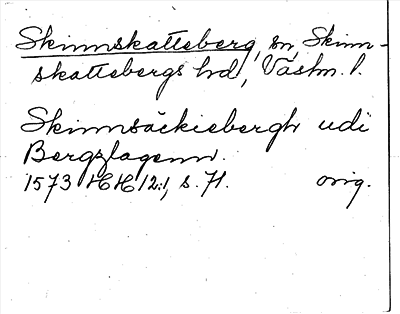 Skinnskatteberg, sn, Skinn-
skattebergs hd, Västm. l.
Skinnsäckiebergh udi
Bergzlagenn.
1573 HH 12:1, s. 71. orig.